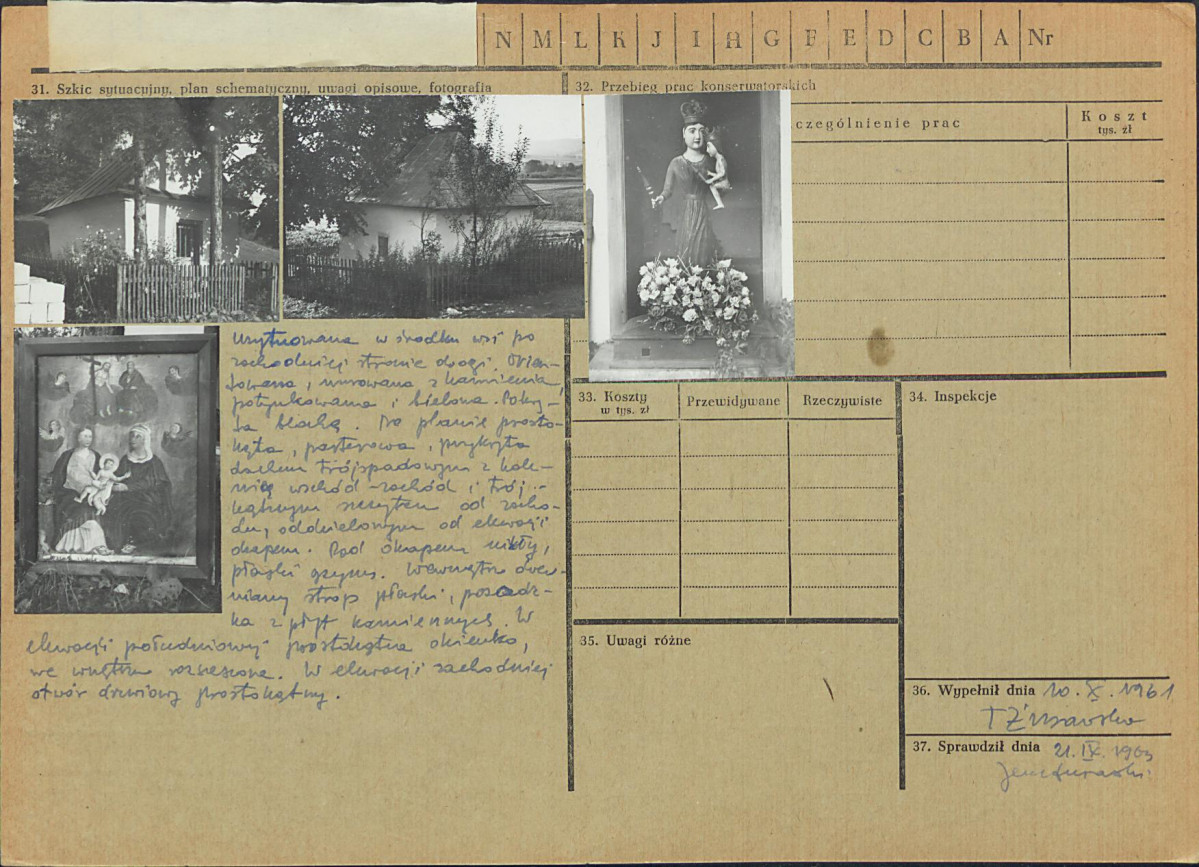 N M L K J I H G F E D C B A Nr
31. Szkic sytuacyjny, plan schematyczny, uwagi opisowe, fotografia
32. Przebieg prac konserwatorskich
czególnienie prac
Koszt
tys. zł
Usytuowana w środku wsi po
zachodniej stronie drogi. Orien-
towana, murowana z kamienia,
potynkowana i bielona. Pokry-
ta blachą. Na planie prosto-
kąta, parterowa, przykryta
dachem trójspadowym z kale-
nicą wschód-zachód i trój-
kątnym szczytem od zacho-
du, oddzielonym od elewacji
okapem. Pod okapem
płaski gzyms. Wewnątrz drew-
niany strop płaski, posadz-
ka z płyt kamiennych. W
elewacji południowej prostokątne okienko,
we wnętrzu rozszerzone. W elewacji zachodniej
otwór drzwiowy prostokątny.
33. Koszty
w tys. zł
Przewidywane
Rzeczywiste
34. Inspekcje
35. Uwagi różne
36. Wypełnił dnia 10.X.1961
37. Sprawdził dnia 21.IX.1963